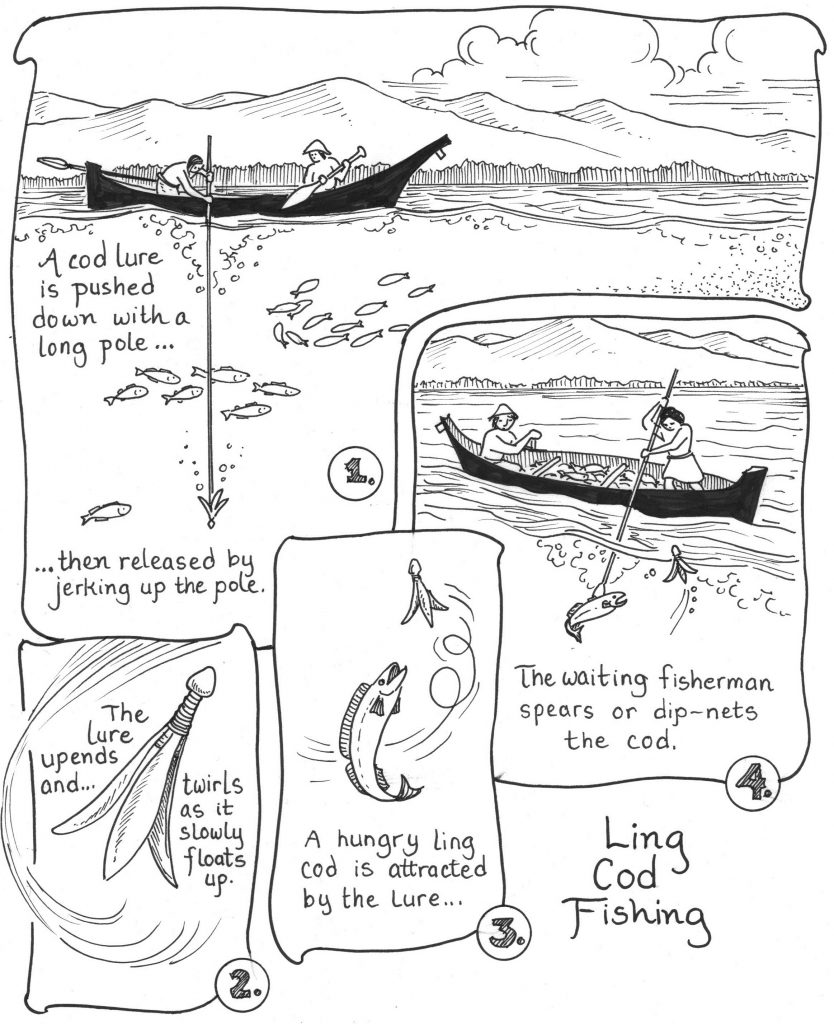 A cod lure
is pushed
down with a
long pole...
...then released by
jerking up the pole.
1.
The
lure
upends
and...
twirls
as it
slowly
floats
up.
2.
A hungry ling
cod is attracted
by the lure...
3.
The waiting fisherman
spears or dip-nets
the cod.
4.
Ling
Cod
Fishing